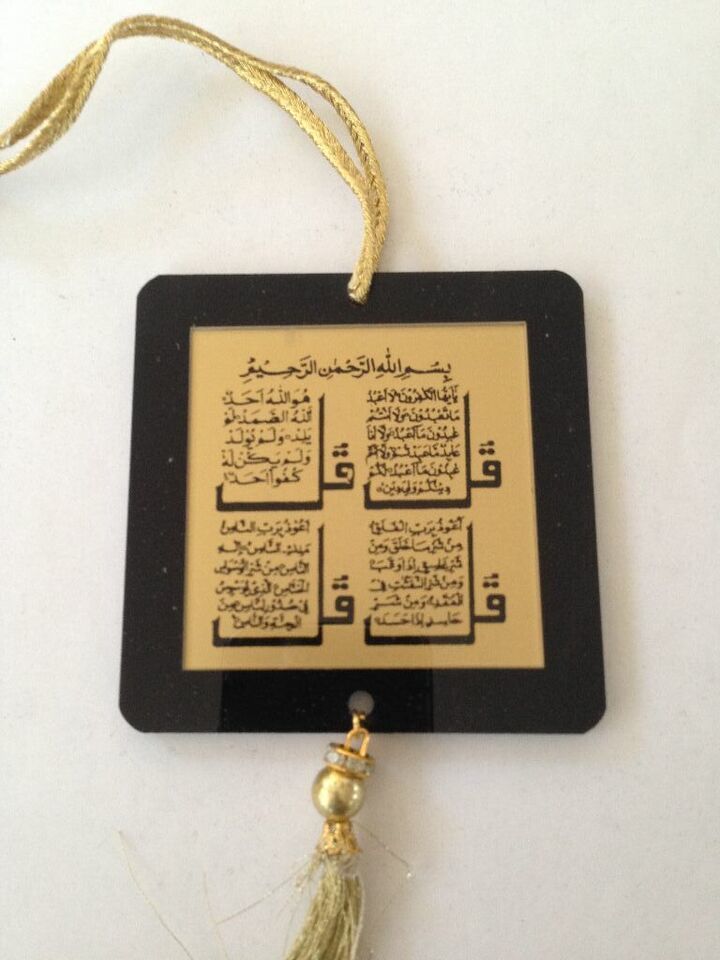 بِسْمِ اللهِ الرَّحْمٰنِ الرَّحِيْمِ
قُلْ
يٰٓاَيُّهَا الْكٰفِرُوْنَ لَا اَعْبُدُ
مَا تَعْبُدُوْنَ وَلَا اَنْتُمْ
عٰبِدُوْنَ مَا اَعْبُدُ وَلَا اَنَا
عَابِدٌ مَّا عَبَدْتُّمْ وَلَا اَنْتُمْ
عٰبِدُوْنَ مَا اَعْبُدُ لَكُمْ
دِيْنُكُمْ وَلِيَ دِيْنِ
قُلْ
هُوَ اللهُ اَحَدٌ
اَللهُ الصَّمَدُ لَمْ
يَلِدْ وَلَمْ يُوْلَدْ
وَلَمْ يَكُنْ لَهٗ
كُفُوًا اَحَدٌ
قُلْ
اَعُوْذُ بِرَبِّ الْفَلَقِ
مِنْ شَرِّ مَا خَلَقَ وَمِنْ
شَرِّ غَاسِقٍ اِذَا وَقَبَ
وَمِنْ شَرِّ النَّفّٰثٰتِ فِي
الْعُقَدِ وَمِنْ شَرِّ
حَاسِدٍ اِذَا حَسَدَ
قُلْ
اَعُوْذُ بِرَبِّ النَّاسِ
مَلِكِ النَّاسِ اِلٰهِ
النَّاسِ مِنْ شَرِّ الْوَسْوَاسِ
الْخَنَّاسِ الَّذِيْ يُوَسْوِسُ
فِيْ صُدُوْرِ النَّاسِ مِنَ
الْجِنَّةِ وَالنَّاسِ